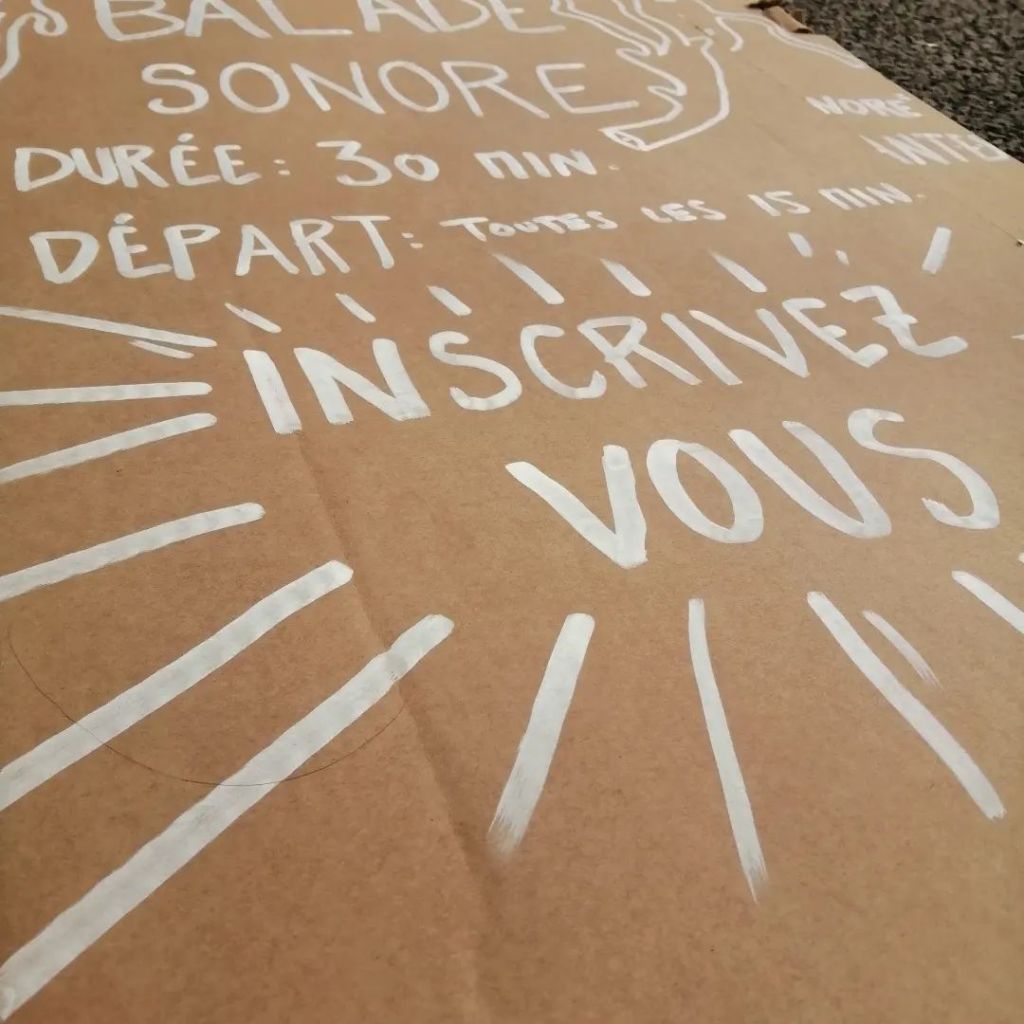 BALADE
SONORE
DURÉE: 30 MIN.
DÉPART: TOUTES LES 15 MIN.
INSCRIVEZ
VOUS